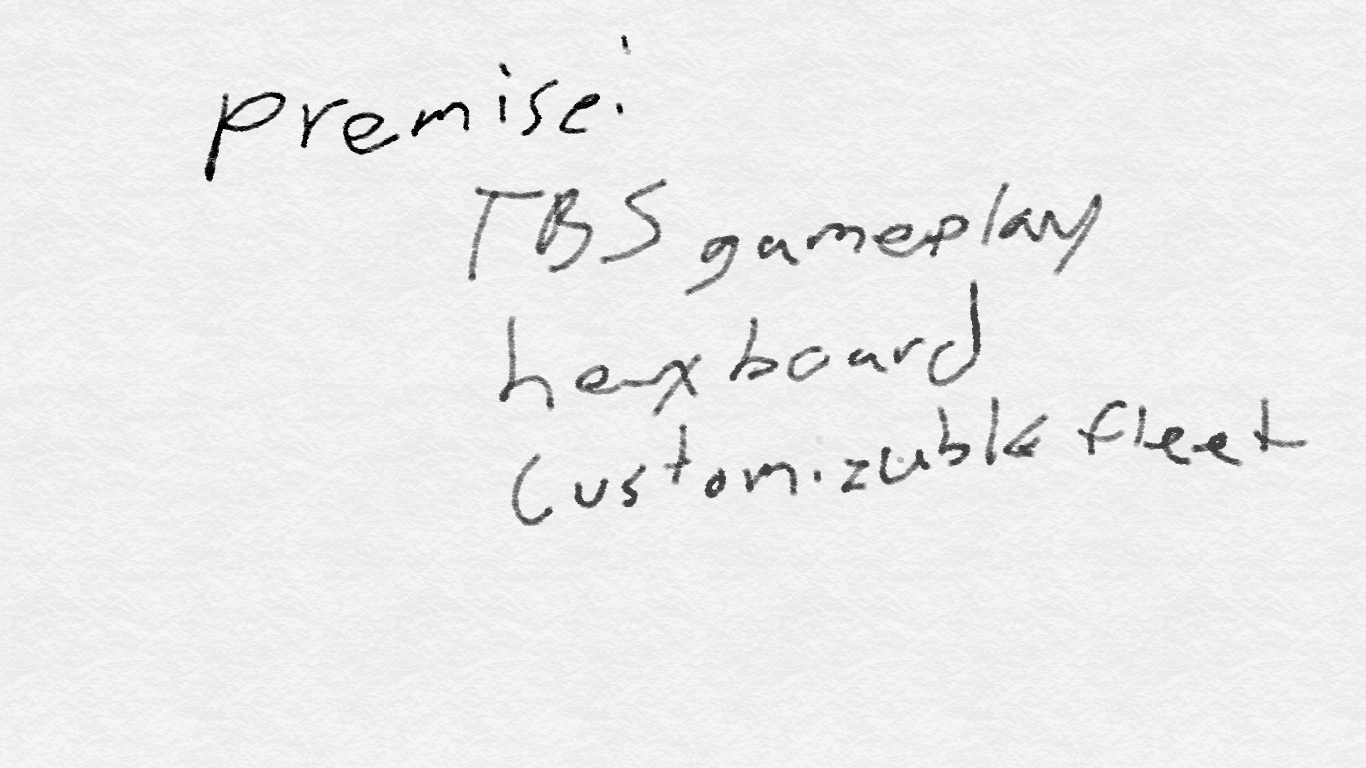 premise:
TBS gameplay
hexboard
customizable fleet